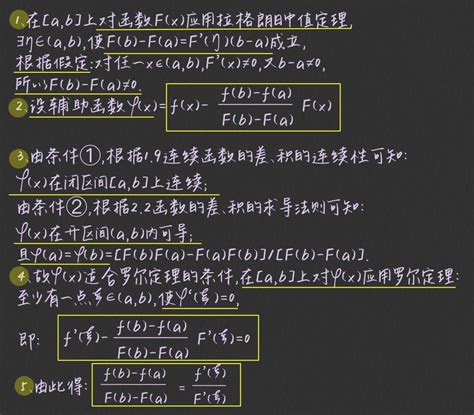 1.在[a,b]上对函数F(x)应用拉格朗日中值定理,
∃η∈(a,b),使F(b)-F(a)=F'(η)(b-a)成立,
根据假定:对任一x∈(a,b),F'(x)≠0,又b-a≠0,
所以F(b)-F(a)≠0.
2.设辅助函数φ(x)= f(x)- \frac{f(b)-f(a)}{F(b)-F(a)} F(x)
3.由条件①,根据1.9连续函数的差、积的连续性可知:
φ(x)在闭区间[a,b]上连续;
由条件②,根据2.2函数的差、积的求导法则可知:
φ(x)在开区间(a,b)内可导;
且φ(a)=φ(b)=[F(b)f(a)-F(a)f(b)]/[F(b)-F(a)].
4.故φ(x)适合罗尔定理的条件,在[a,b]上对φ(x)应用罗尔定理:
至少有一点ξ∈(a,b),使φ'(ξ)=0,
即: f'(ξ)- \frac{f(b)-f(a)}{F(b)-F(a)} F'(ξ)=0
5.由此得: \frac{f(b)-f(a)}{F(b)-F(a)} = \frac{f'(ξ)}{F'(ξ)}